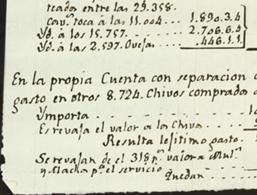 teados entre las 29.358.
Cav.s toca à las 11.004 1.890.3.4
Yd. à los 15.757. 2.706.6.4
Yd. à las 2.597. Ovejas. 446.1.1
En la propia Cuenta con separacion
gasto en otros 8.724. Chivos comprados
Ymporta
Es revaja el valor a los Chivo
Resulta lejitimo gasto
Se revajan de el 318 p.s valor a Mul
y Macho p.a el servicio
Quedan